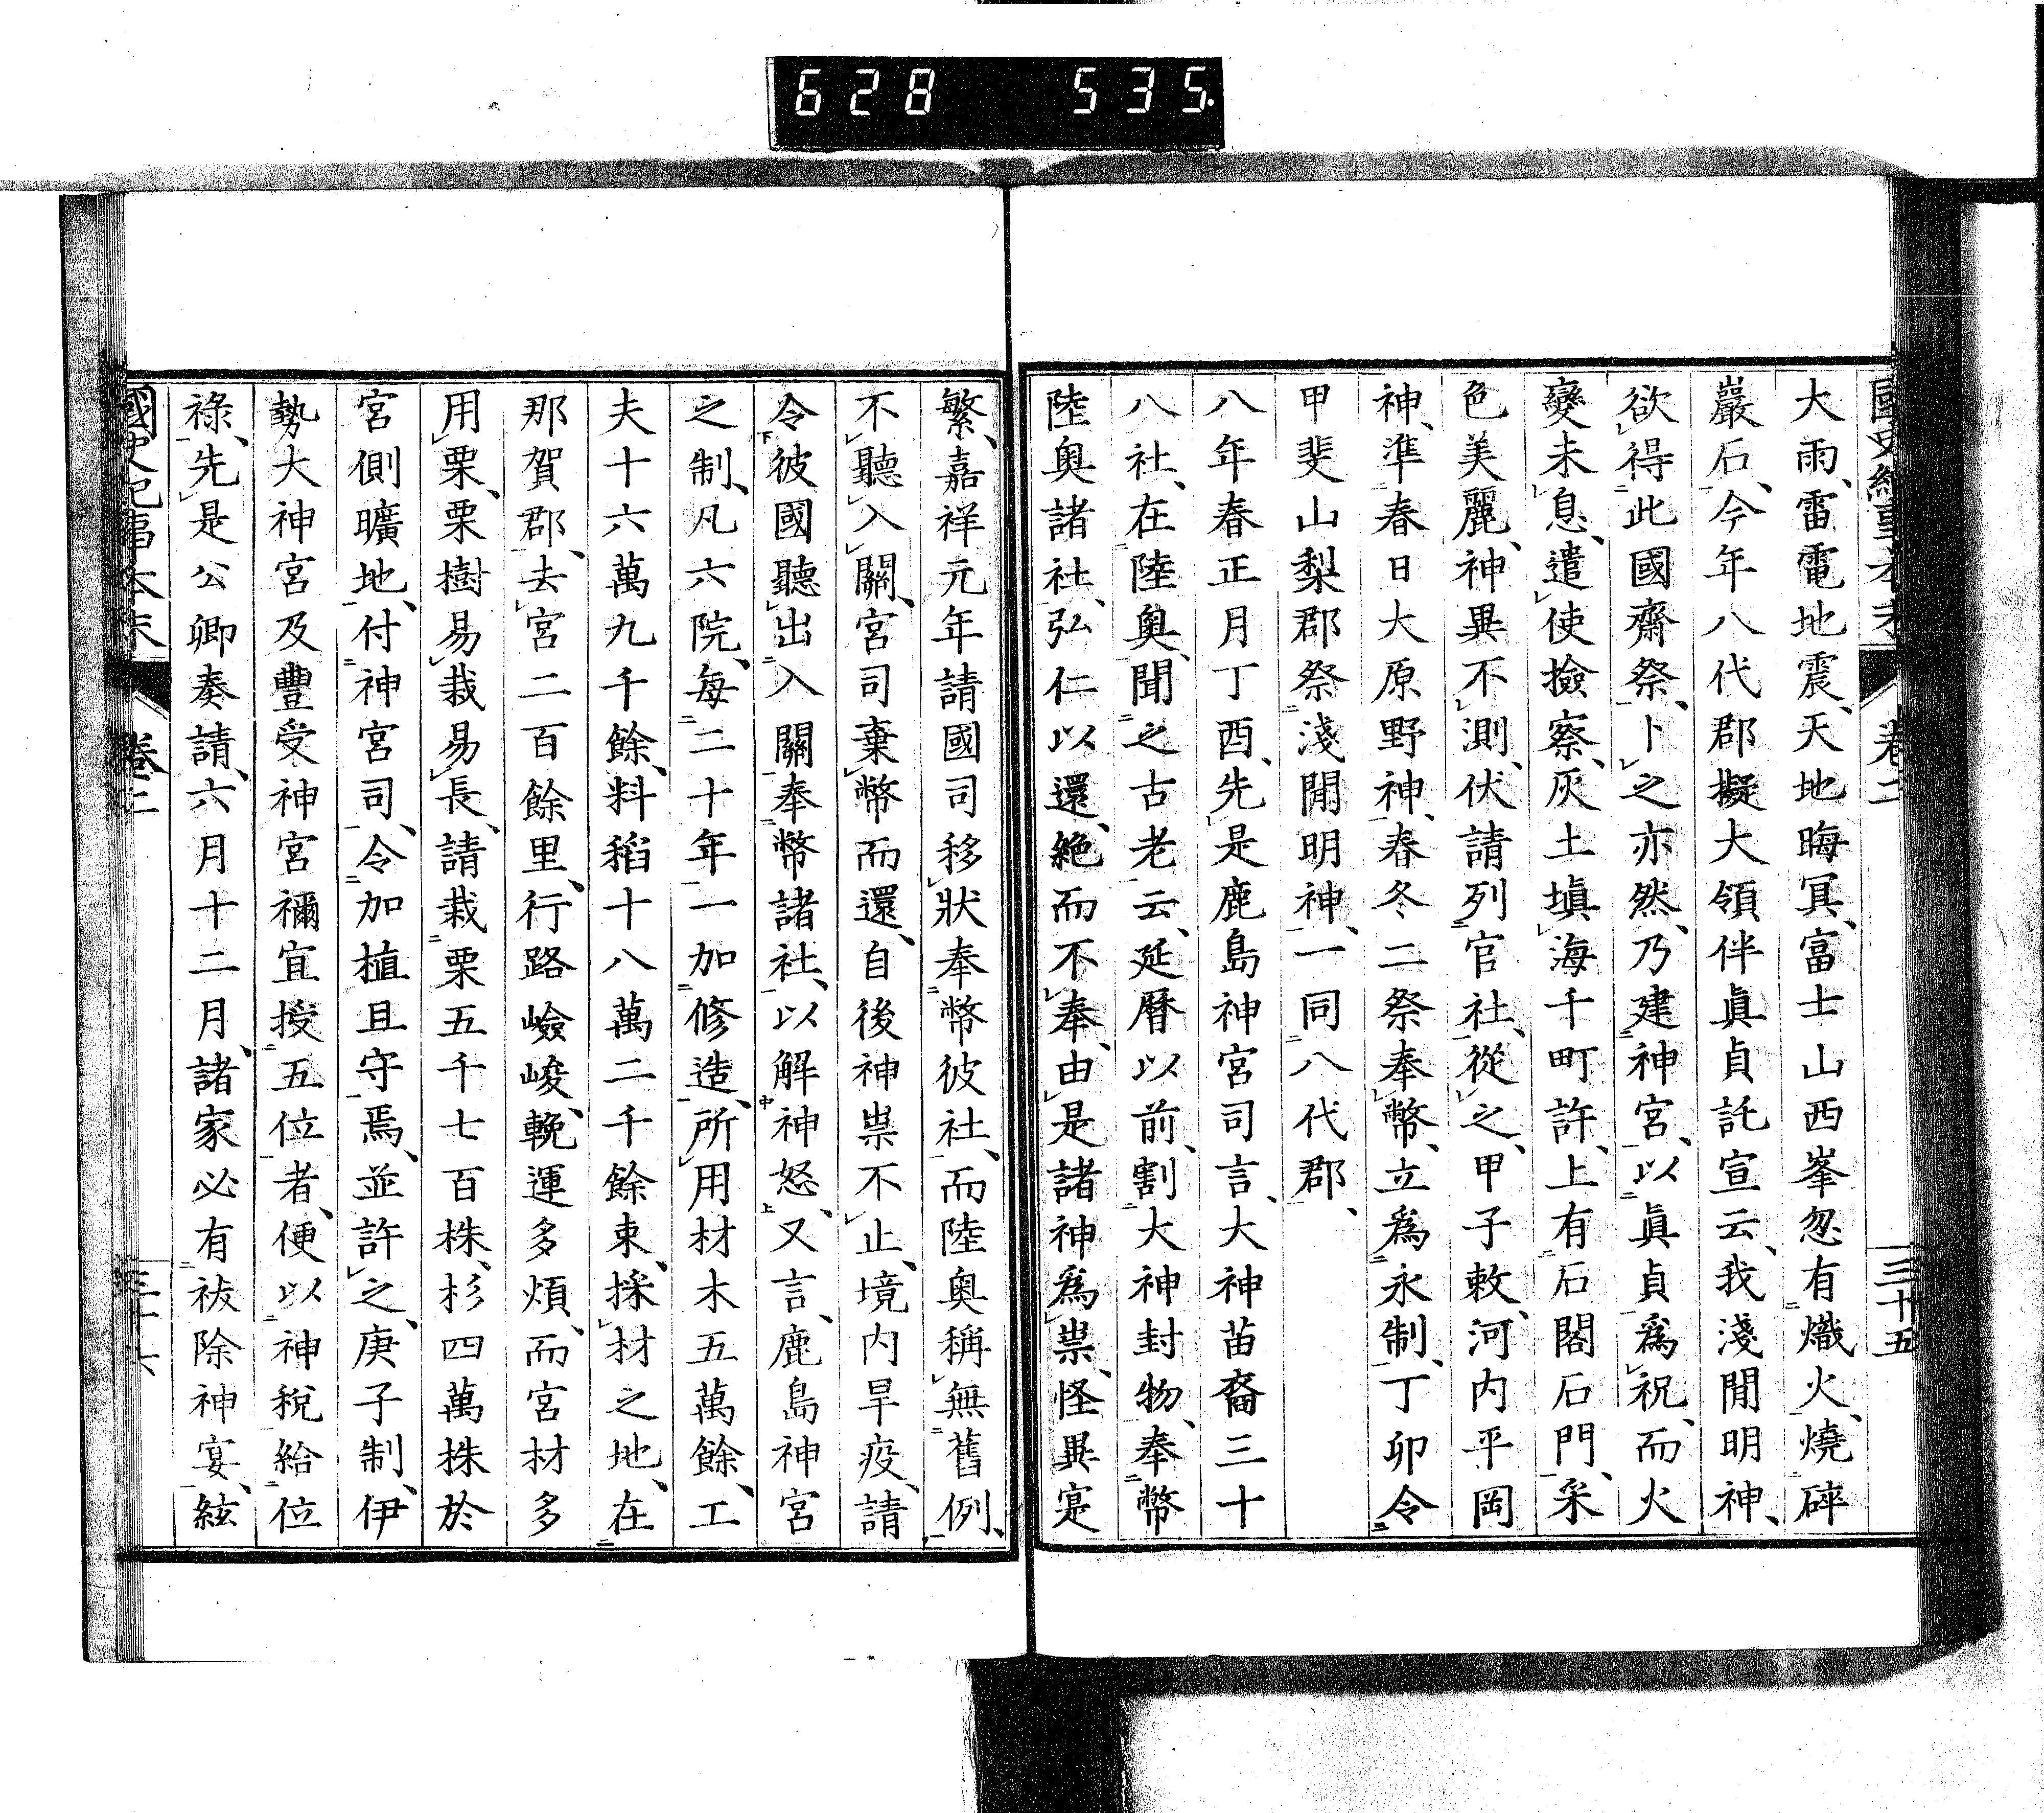 628 535.
國史紀事本末 卷二 三十五
大雨、雷電地震、天地晦冥、富士山西峯忽有熾火、燒碎
巖石、今年八代郡擬大領伴眞貞託宣云、我淺間明神、
欲得此國齋祭、卜之亦然、乃建神宮、以眞貞爲祝、而火
變未息、遣使撿察、灰土塡海千町許、上有石閣石門、采
色美麗、神異不測、伏請列官社、從之、甲子敕、河内平岡
神、準春日大原野神、春冬二祭奉幣、立爲永制、丁卯令
甲斐山梨郡祭淺間明神、一同八代郡、
八年春正月丁酉、先是鹿島神宮司言、大神苗裔三十
八社、在陸奥、聞之古老云、延曆以前、割大神封物、奉幣
陸奥諸社、弘仁以還、絶而不奉、由是諸神爲祟、怪異寔
繁、嘉祥元年請國司移狀奉幣彼社、而陸奥稱無舊例、
不聽入關、宮司棄幣而還、自後神祟不止、境内旱疫、請
令彼國聽出入關奉幣諸社、以解神怒、又言、鹿島神宮
之制、凡六院、每二十年一加修造、所用材木五萬餘、工
夫十六萬九千餘、料稻十八萬二千餘束、採材之地、在
那賀郡、去宮二百餘里、行路嶮峻、輓運多煩、而宮材多
用栗、栗樹易栽易長、請栽栗五千七百株、杉四萬株於
宮側曠地、付神宮司、令加植且守焉、並許之、庚子制、伊
勢大神宮及豐受神宮禰宜授五位者、便以神稅給位
祿、先是公卿奏請、六月十二月、諸家必有祓除神宴、絃
國史紀事本末 卷二 三十六